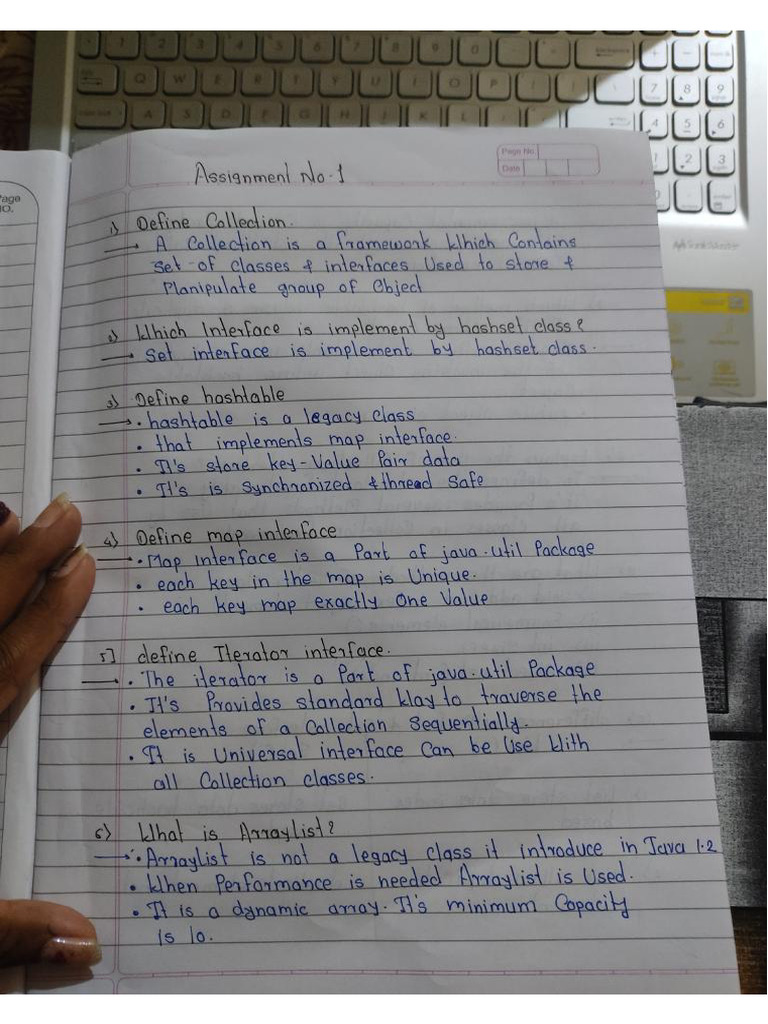 Page No.
Date
Assignment No. 1
1) Define Collection.
→ A Collection is a framework Which Contains
Set of classes & interfaces Used to store &
Manipulate group of Object
2) Which Interface is implement by hashset class?
→ Set interface is implement by hashset class.
3) Define hashtable
→ • hashtable is a legacy class
• that implements map interface.
• It's store key-Value Pair data
• It's is Synchronized & thread Safe
4) Define map interface
→ • Map Interface is a Part of java.util Package
• each key in the map is Unique.
• each key map exactly One Value
5] define Iterator interface.
→ • The iterator is a Part of java.util Package
• It's Provides standard Way to traverse the
elements of a Collection Sequentially.
• It is Universal interface Can be Use With
all Collection classes.
6) What is Arraylist?
→ • Arraylist is not a legacy class it introduce in Java 1.2
• When Performance is needed Arraylist is Used.
• It is a dynamic array. It's minimum Capacity
is 10.